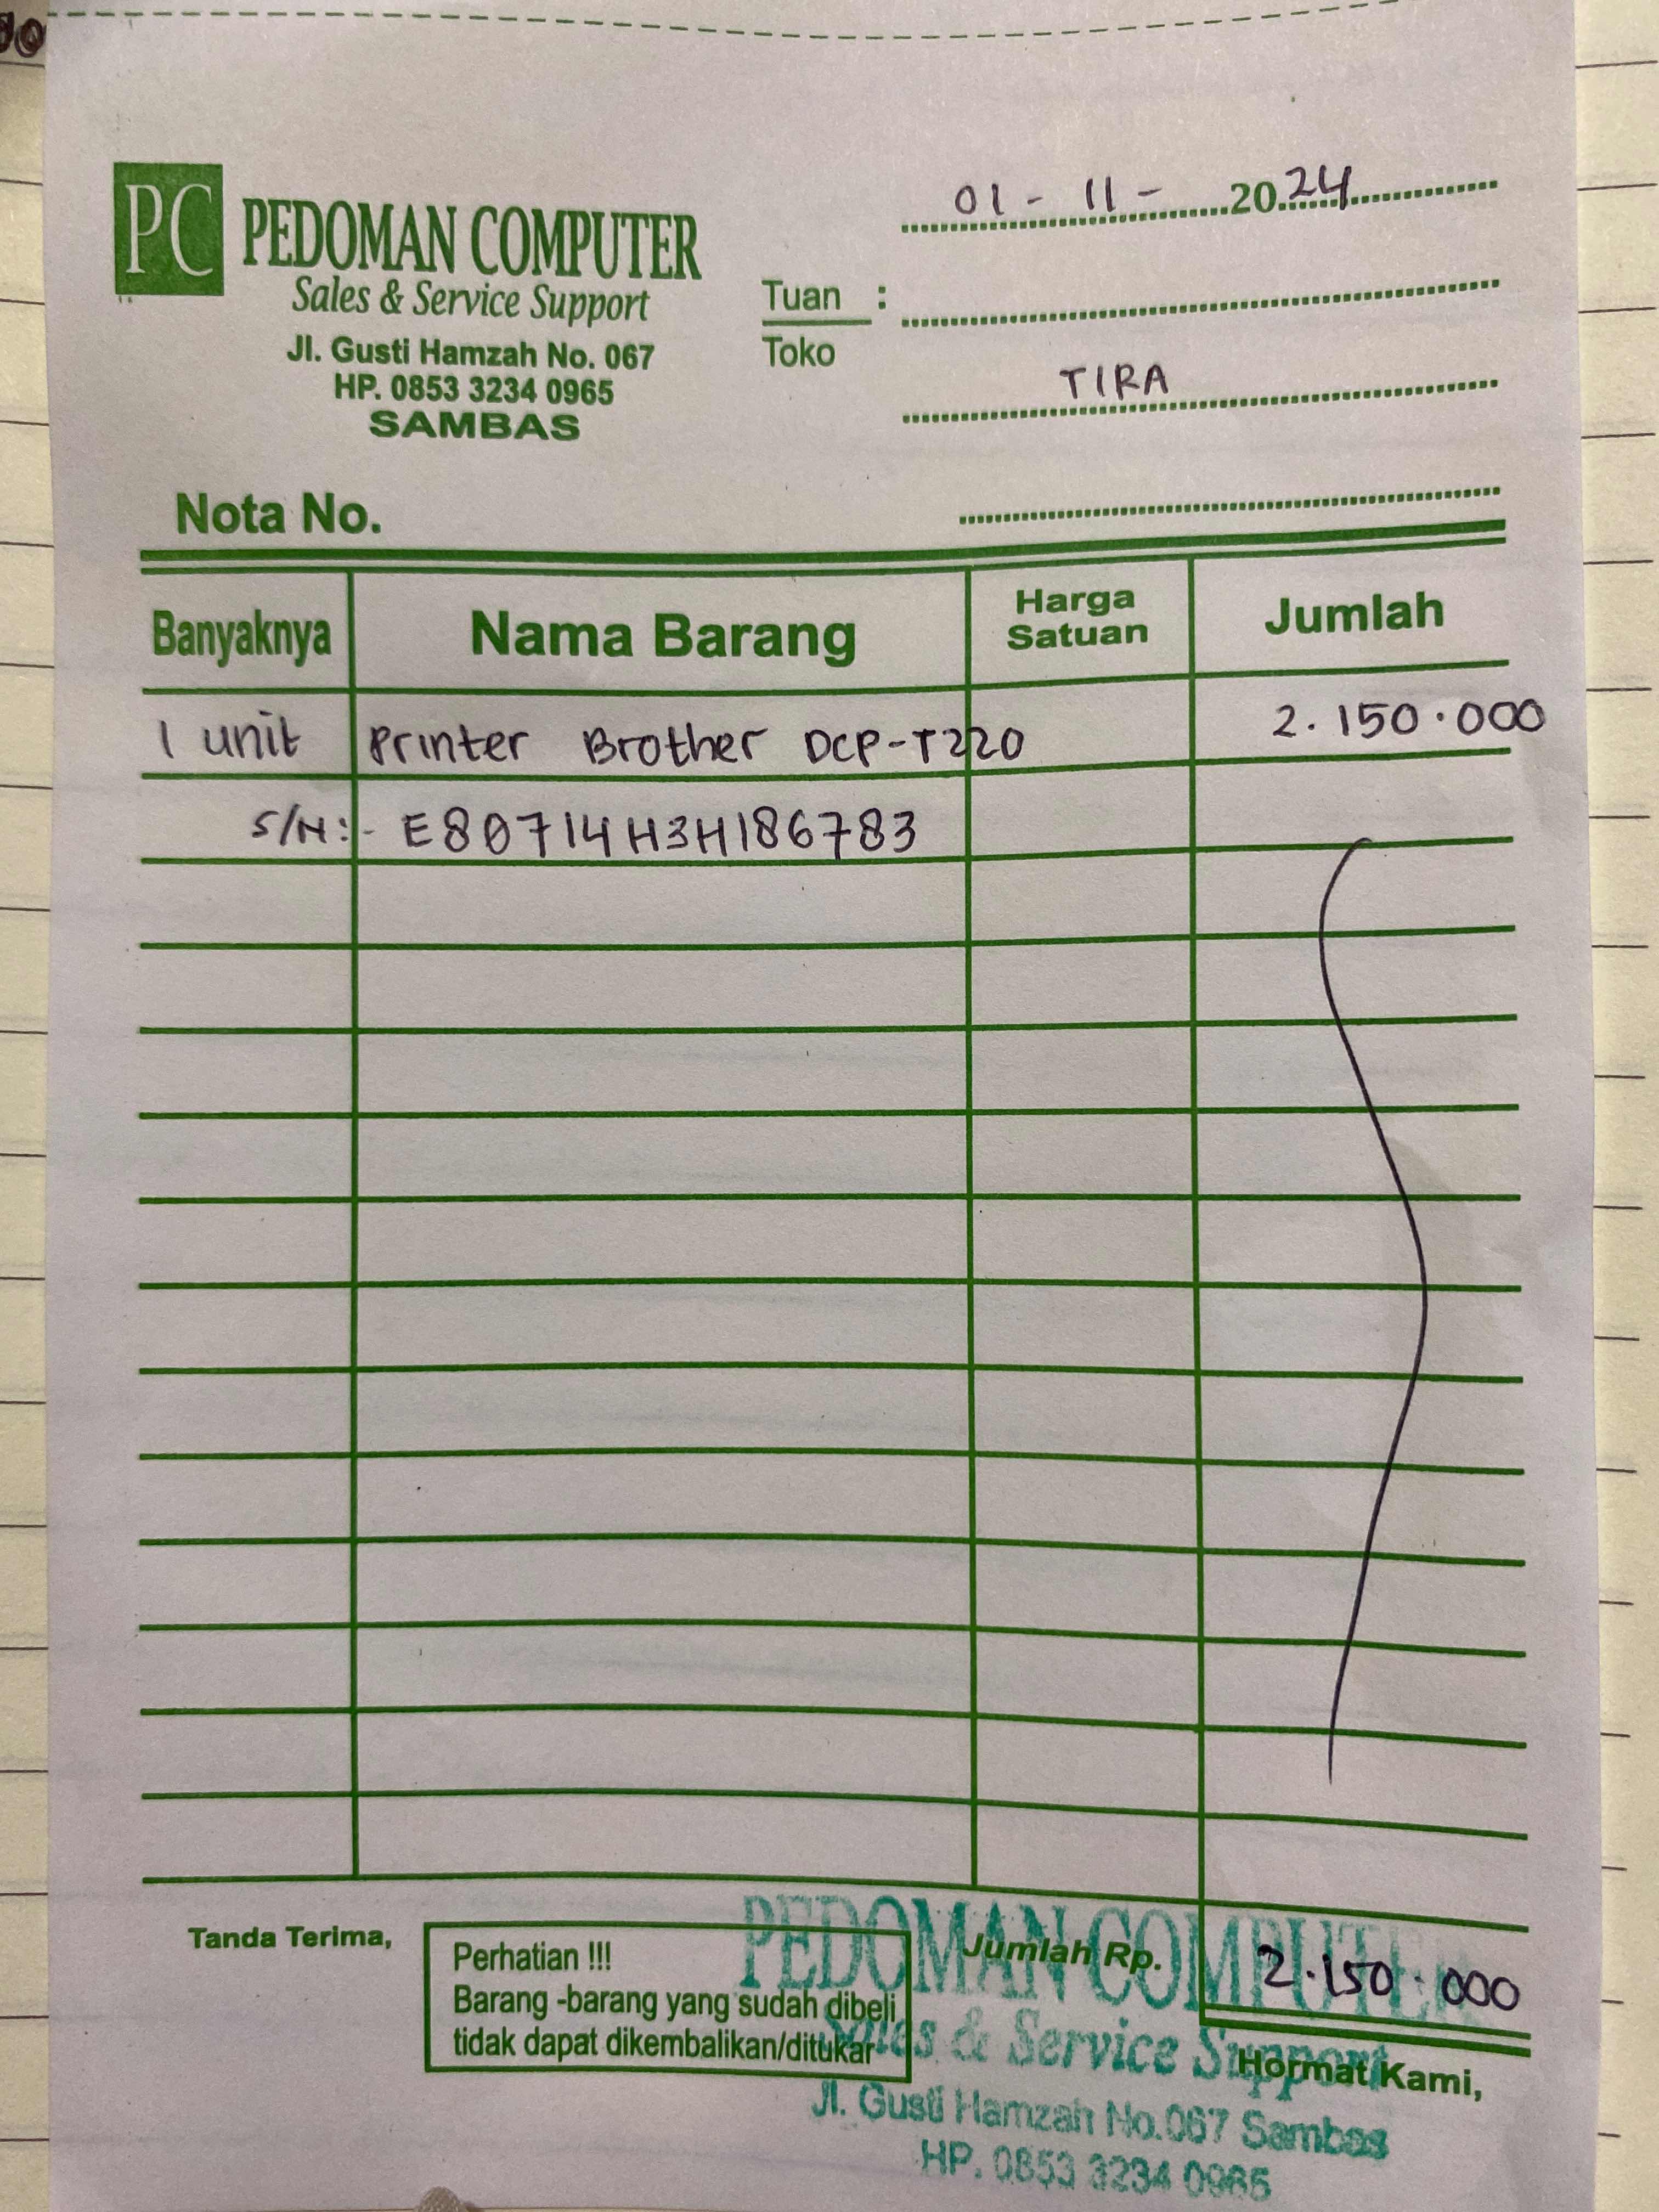 PC
PEDOMAN COMPUTER
Sales & Service Support
Jl. Gusti Hamzah No. 067
HP. 0853 3234 0965
SAMBAS
01 - 11 - 2024
Tuan :
Toko
TIRA
Nota No.
Banyaknya Nama Barang Harga Satuan Jumlah
1 unit Printer Brother DCP-T220 2.150.000
S/N:- E80714H3H186783
Tanda Terima,
Perhatian !!!
Barang -barang yang sudah dibeli
tidak dapat dikembalikan/ditukar
Jumlah Rp. 2.150.000
Hormat Kami,
PEDOMAN COMPUTER
Sales & Service Support
Jl. Gusti Hamzah No.067 Sambas
HP. 0853 3234 0965